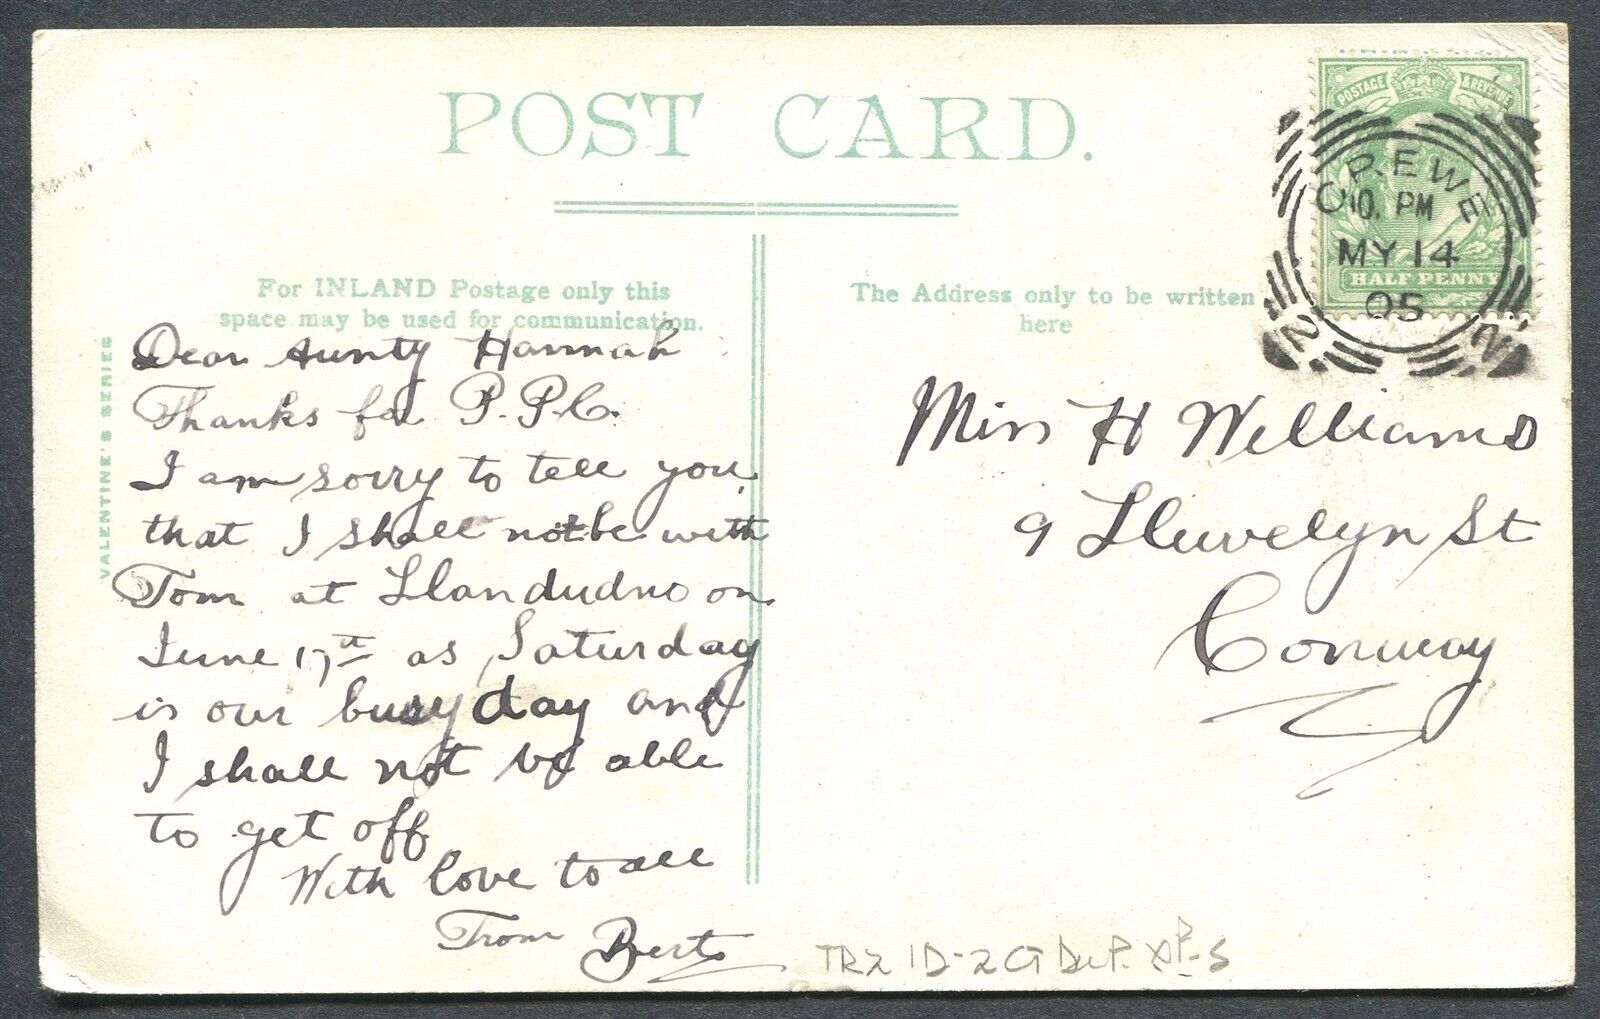 POST CARD.
POSTAGE & REVENUE
CREWE
10. PM
MY 14
05
2 N
HALF PENNY
For INLAND Postage only this
space may be used for communication.
The Address only to be written
here
VALENTINE'S SERIES
Dear Aunty Hannah
Thanks for P.P.C.
I am sorry to tell you
that I shall not be with
Tom at Llandudno on
June 17th as Saturday
is our busy day and
I shall not be able
to get off
With love to all
From Bert
Miss H Williams
9 Llewelyn St
Conway